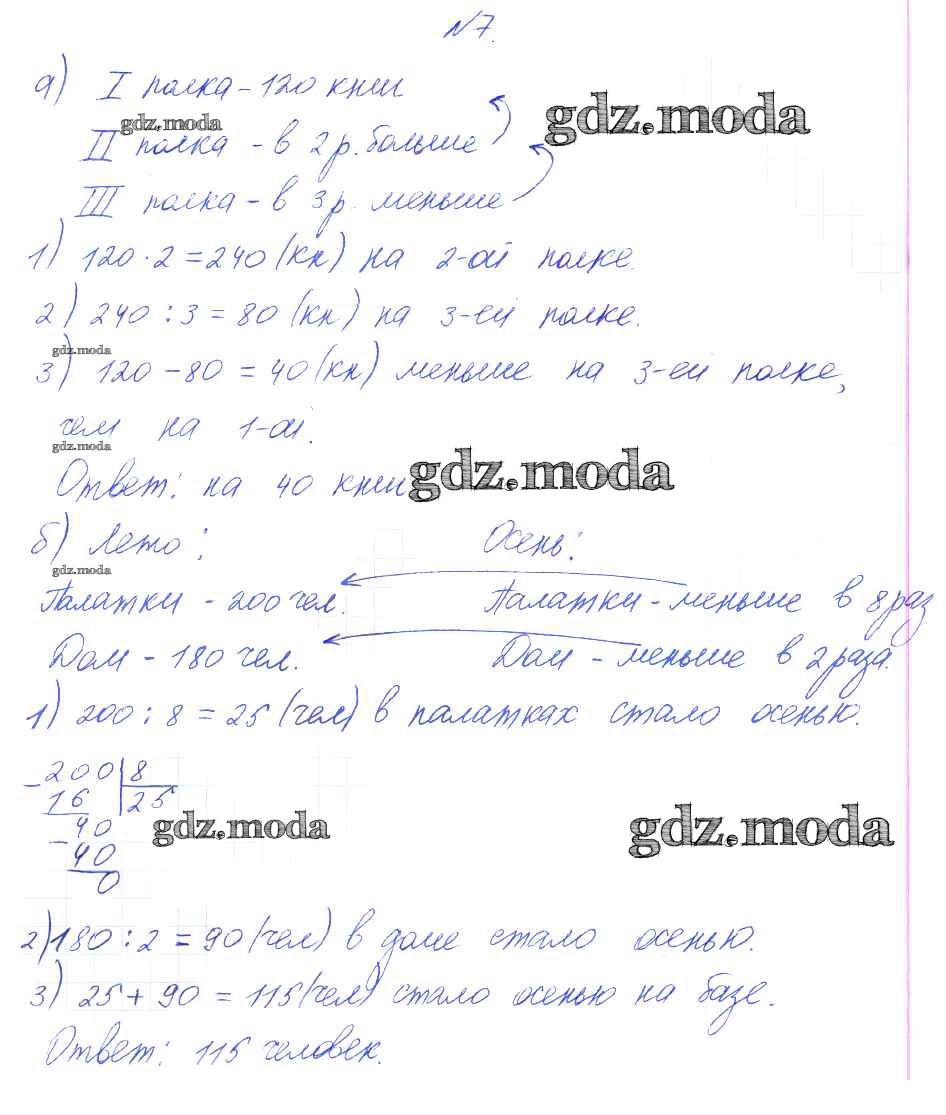 №7.
а) I полка – 120 книг
gdz.moda
gdz.moda
II полка – в 2 р. больше
III полка – в 3 р. меньше
1) 120 · 2 = 240 (кн) на 2-ой полке.
2) 240 : 3 = 80 (кн) на 3-ей полке.
gdz.moda
3) 120 – 80 = 40 (кн) меньше на 3-ей полке,
чем на 1-ой.
gdz.moda
Ответ: на 40 книг
gdz.moda
б) Лето: Осень:
gdz.moda
Палатки – 200 чел. Палатки – меньше в 8 раз
Дом – 180 чел. Дом – меньше в 2 раза.
1) 200 : 8 = 25 (чел) в палатках стало осенью.
– 200 | 8
16 | 25
– 40
40
0
gdz.moda
gdz.moda
2) 180 : 2 = 90 (чел) в доме стало осенью.
3) 25 + 90 = 115 (чел) стало осенью на базе.
Ответ: 115 человек.